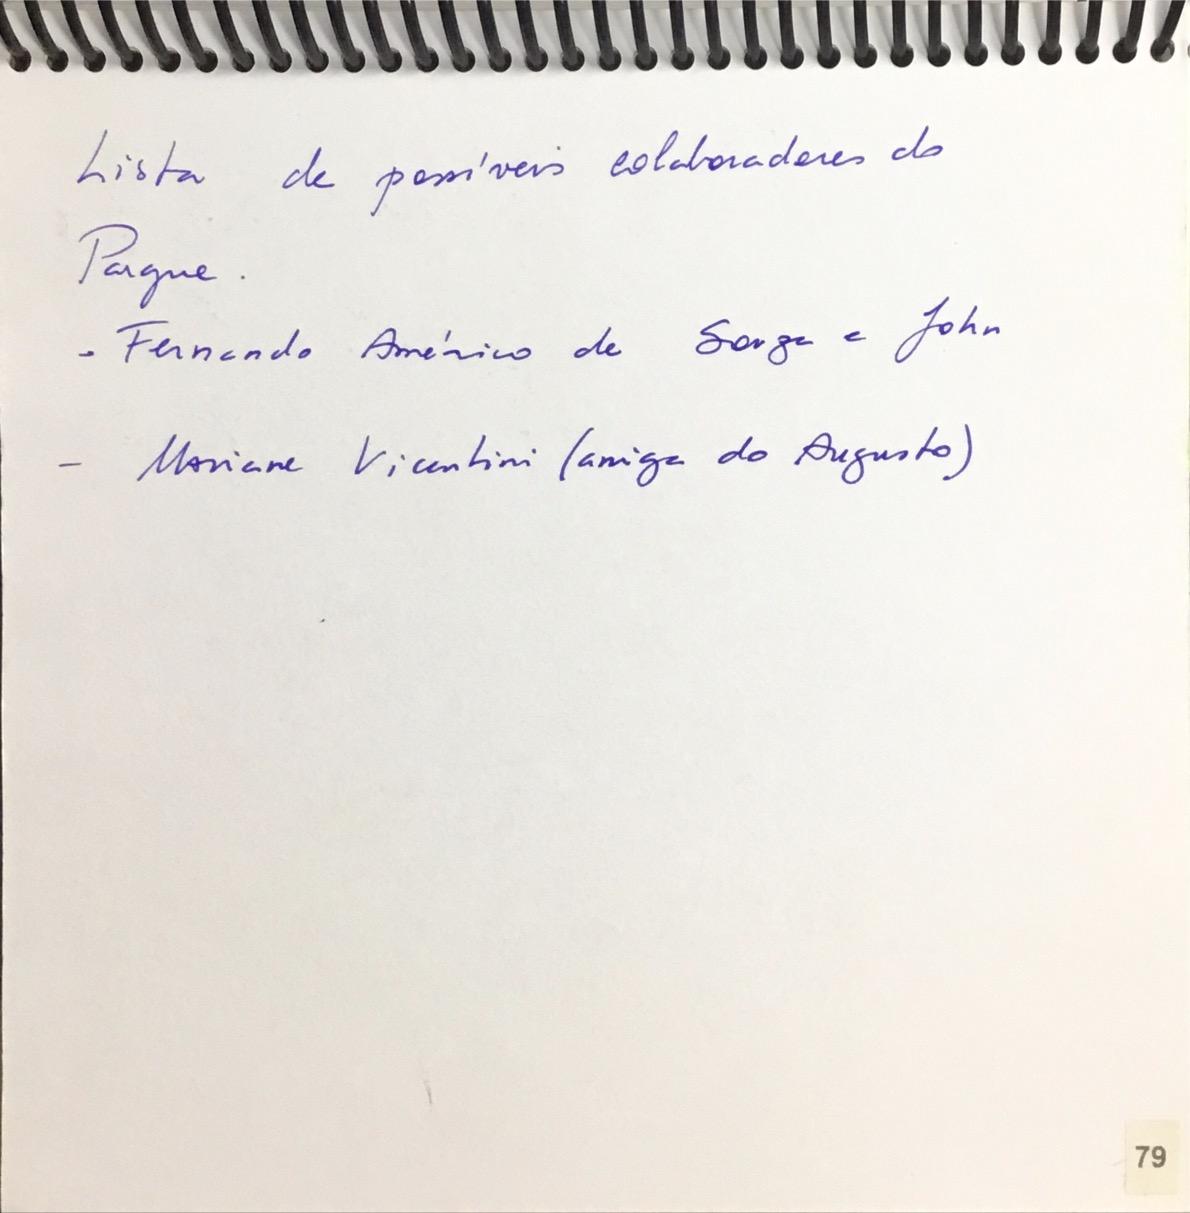 Lista de possíveis colaboradores do
Parque.
- Fernando Américo de Souza e John
- Mariane Vicentini (amiga do Augusto)
79